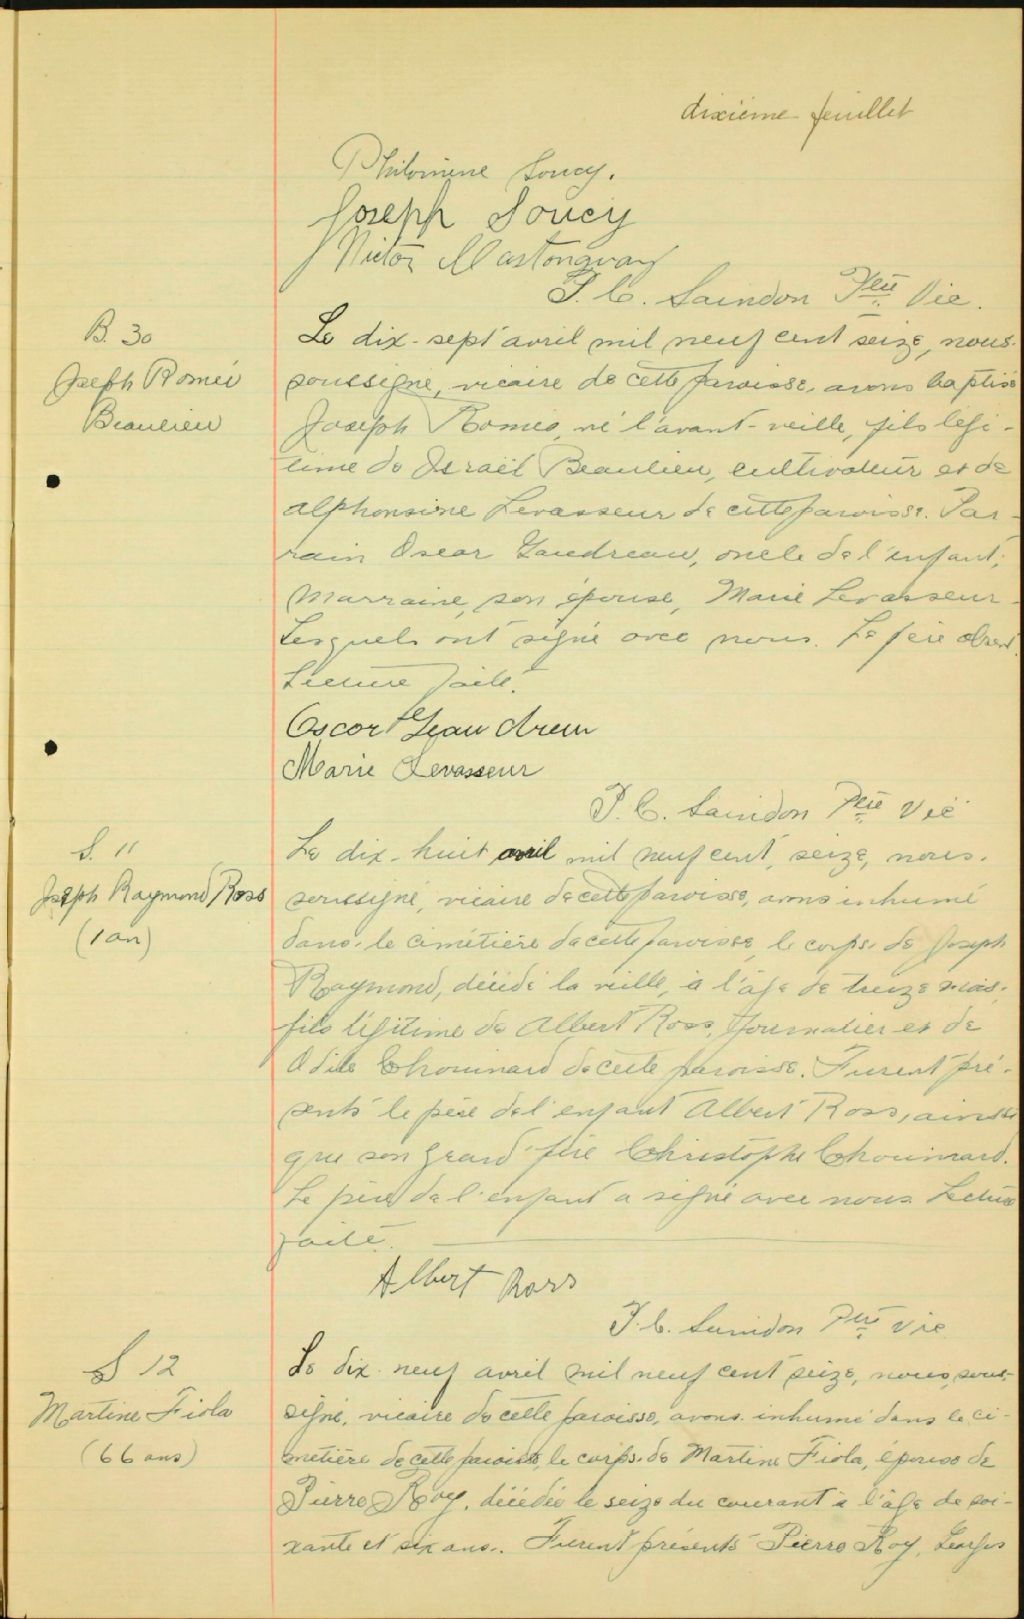 dixième feuillet
Philomène Soucy.
Joseph Soucy
Victor Mastonguay
J. C. Saindon Ptre Vic.
B. 30
Joseph Roméo
Beaulieu
Le dix-sept avril mil neuf cent seize, nous
soussigné, vicaire de cette paroisse, avons baptisé
Joseph Roméo, né l'avant-veille, fils légi-
time de Israël Beaulieu, cultivateur et de
Alphonsine Levasseur de cette paroisse. Par-
rain Oscar Gaudreau, oncle de l'enfant;
Marraine, son épouse, Marie Levasseur
Lesquels ont signé avec nous. Le père absent.
Lecture faite.
Oscar Geaudreau
Marie Levasseur
J. C. Saindon Ptre Vic
S. 11
Joseph Raymond Ross
(1 an)
Le dix-huit avril mil neuf cent seize, nous
soussigné, vicaire de cette paroisse, avons inhumé
dans le cimétière de cette paroisse, le corps de Joseph
Raymond, décédé la veille, à l'âge de treize mois,
fils légitime de Albert Ross, journalier et de
Odile Chouinard de cette paroisse. Furent pré-
sents le père de l'enfant Albert Ross, ainsi
que son grand père Christophe Chouinard.
Le père de l'enfant a signé avec nous Lecture
faite.
Albert Ross
J. C. Saindon Ptre Vic
S 12
Martine Fiola
(66 ans)
Le dix-neuf avril mil neuf cent seize, nous, sous-
signé, vicaire de cette paroisse, avons inhumé dans le ci-
metière de cette paroisse, le corps de Martine Fiola, épouse de
Pierre Roy, décédée le seize du courant à l'âge de soi-
xante et six ans. Furent présents Pierre Roy, Georges